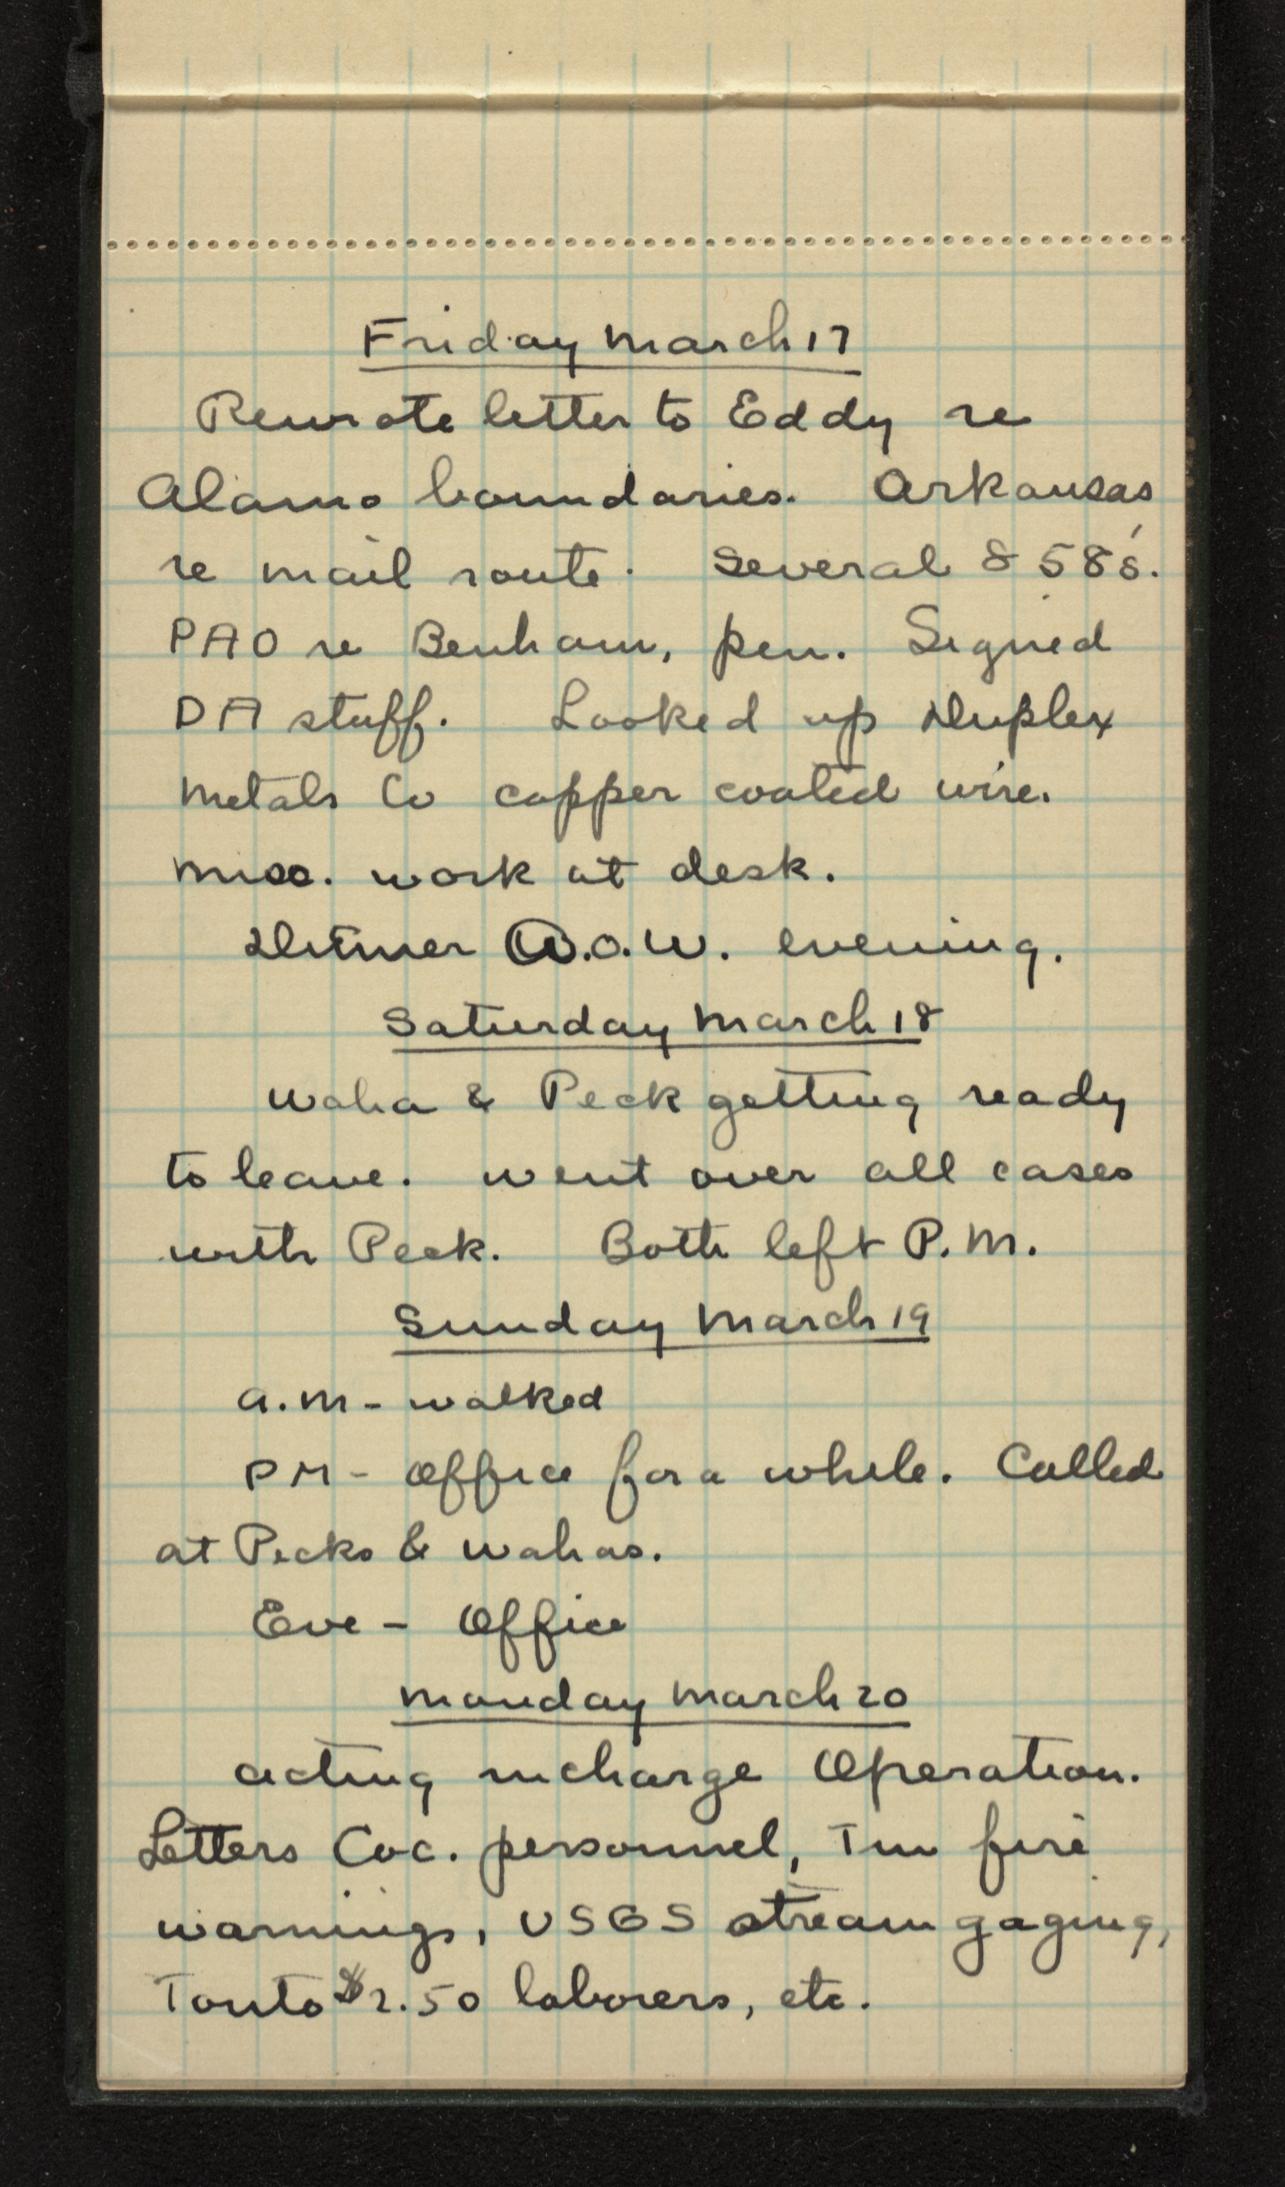 Friday March 17
Rewrote letter to Eddy re
Alamo boundaries. Arkansas
re mail route. Several 858's.
PAO re Benham, pen. Signed
DA stuff. Looked up Duplex
Metals Co copper coated wire.
Misc. work at desk.
W.O.W. evening.
Saturday March 18
Waha & Peck getting ready
to leave. Went over all cases
with Peck. Both left P.M.
Sunday March 19
a.m - walked
PM - Office for a while. Called
at Pecks & Wahas.
Eve - Office
Monday March 20
Acting incharge Operation.
Letters Coc. personnel, fire
warnings, USGS stream gaging,
Tonto $2.50 laborers, etc.